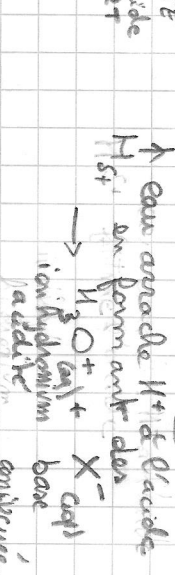 ide
↑ eau arrache H⁺ à l'acide
H δ+ en formant des
→ H₃O⁺(aq) + X⁻(aq)
ion hydronium base
acidité conjuguée